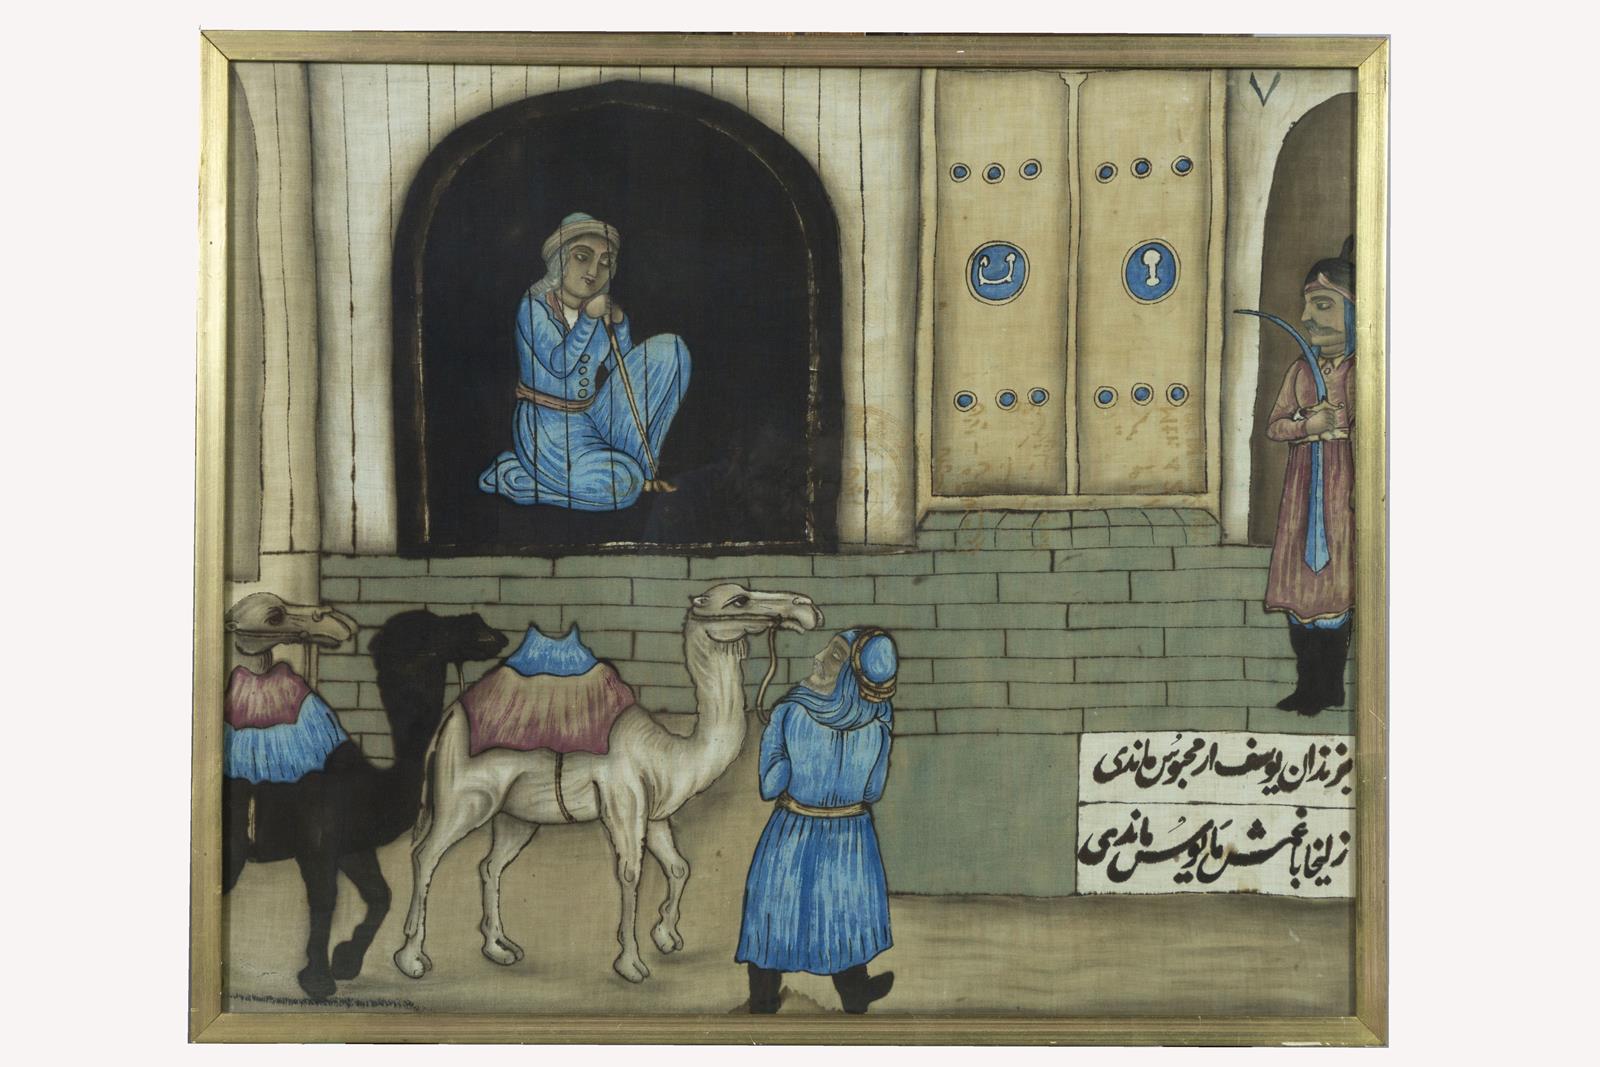 ۷
بزندان یوسف ار محبوس ماندی
زلیخا با غمش مأیوس ماندی